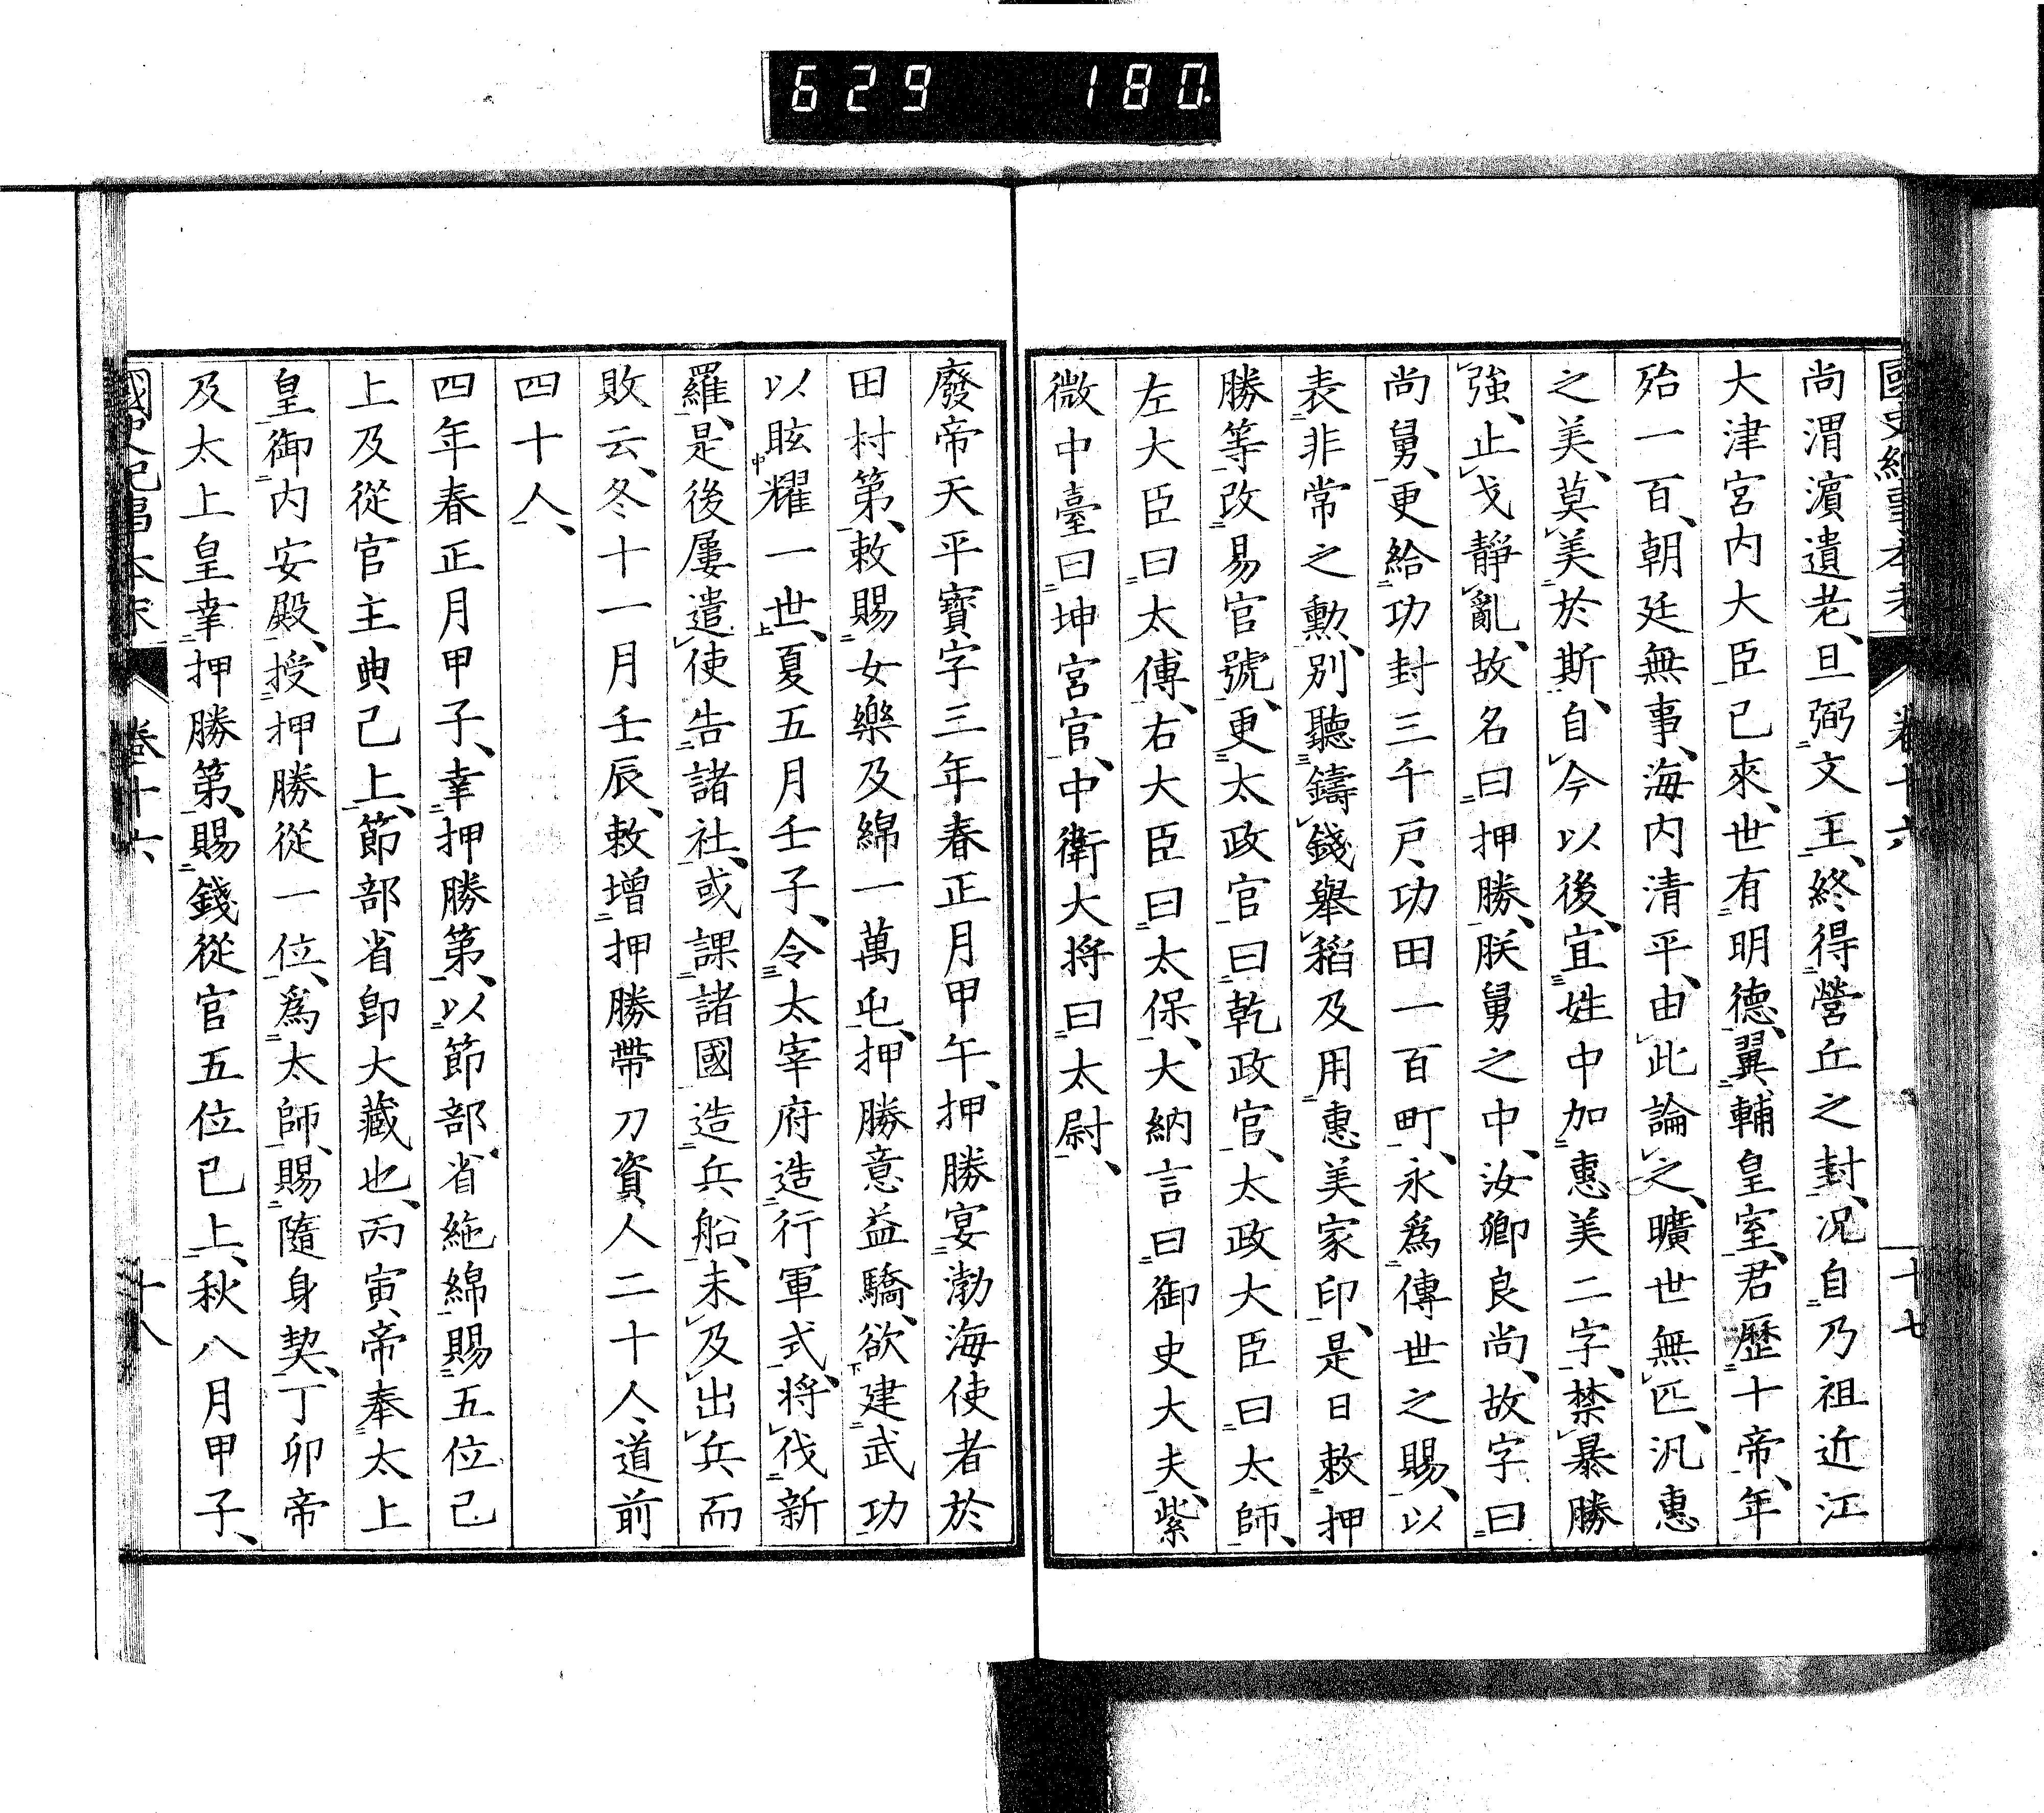 629 180
國史紀事本末 卷十六 十七
尚渭濵遺老、旦弼文王、終得營丘之封、况自乃祖近江
大津宮内大臣已來、世有明德、翼輔皇室、君歷十帝、年
殆一百、朝廷無事、海内清平、由此論之、曠世無匹、汎惠
之美、莫美於斯、自今以後、宜姓中加惠美二字、禁暴勝
強、止戈靜亂、故名曰押勝、朕舅之中、汝卿良尚、故字曰
尚舅、更給功封三千戸、功田一百町、永爲傳世之賜、以
表非常之勳、別聽鑄錢舉稻及用惠美家印、是日敕押
勝等、改易官號、更太政官曰乾政官、太政大臣曰太師、
左大臣曰太傅、右大臣曰太保、大納言曰御史大夫、紫
微中臺曰坤宮官、中衛大將曰太尉、
廢帝天平寶字三年春正月甲午、押勝宴渤海使者於
田村第、敕賜女樂及綿一萬屯、押勝意益驕、欲建武功
以眩耀一世、夏五月壬子、令太宰府造行軍式、將伐新
羅、是後屢遣使告諸社、或課諸國造兵船、未及出兵而
敗云、冬十一月壬辰、敕增押勝帶刀資人二十人、道前
四十人、
四年春正月甲子、幸押勝第、以節部省絁綿賜五位已
上及從官主典己上、節部省卽大藏也、丙寅、帝奉太上
皇御内安殿、授押勝從一位、爲太師、賜隨身契、丁卯帝
及太上皇幸押勝第、賜錢從官五位已上、秋八月甲子、
國史紀事本末 卷十六 十八